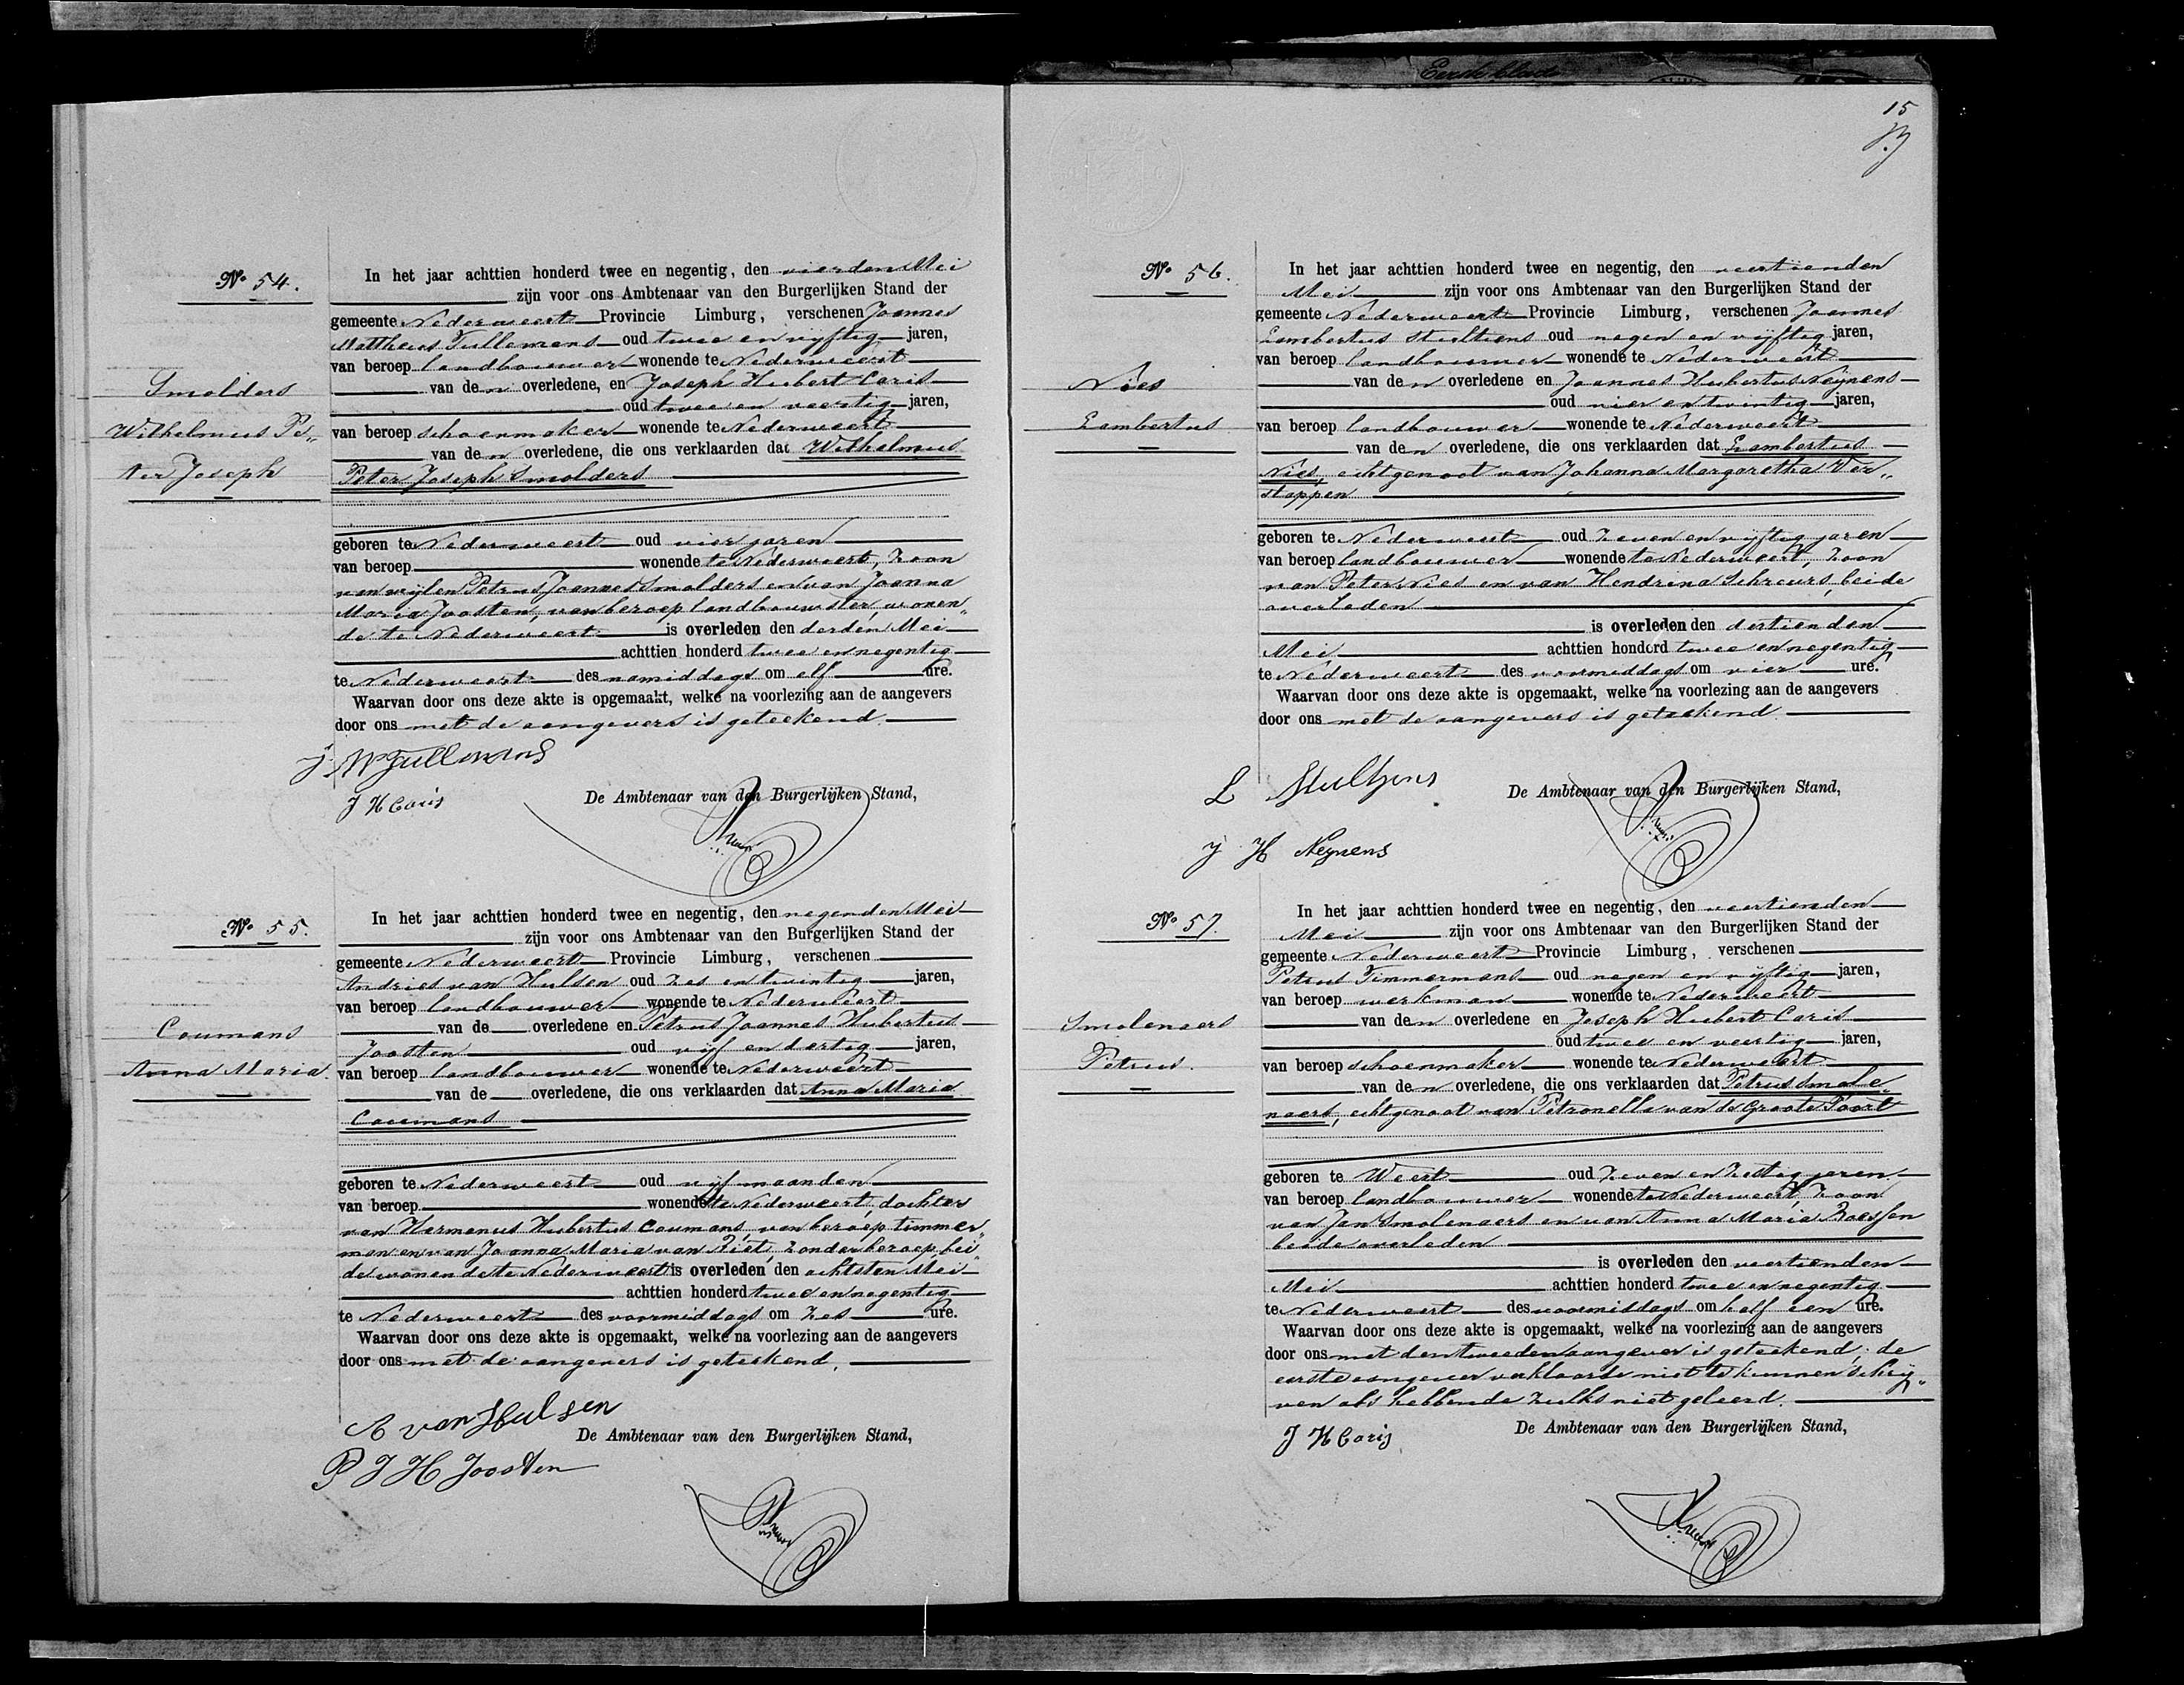 Eerste blad
15
No 54.
Smolders
Wilhelmus Pe„
ter Joseph
In het jaar achttien honderd twee en negentig, den vierden Mei
zijn voor ons Ambtenaar van den Burgerlijken Stand der
gemeente Nederweert Provincie Limburg, verschenen Joannes
Mattheus Tullemans oud twee en vijftig jaren,
van beroep landbouwer wonende te Nederweert
van den overledene, en Joseph Hubert Caris
oud twee en veertig jaren,
van beroep schoenmaker wonende te Nederweert
van den overledene, die ons verklaarden dat Wilhelmus
Peter Joseph Smolders
geboren te Nederweert oud vier jaren
van beroep wonende te Nederweert, zoon
van wijlen Petrus Joannes Smolders en van Joanna
Maria Joosten, van beroep landbouwster, wonen„
de te Nederweert is overleden den derden Mei
achttien honderd twee en negentig
te Nederweert des namiddags om elf ure.
Waarvan door ons deze akte is opgemaakt, welke na voorlezing aan de aangevers
door ons met de aangevers is geteekend.
J. M Tullemans
J H Caris
De Ambtenaar van den Burgerlijken Stand,
No 55.
Coumans
Anna Maria.
In het jaar achttien honderd twee en negentig, den negenden Mei
zijn voor ons Ambtenaar van den Burgerlijken Stand der
gemeente Nederweert Provincie Limburg, verschenen
Andries van Hulsen oud zes en twintig jaren,
van beroep landbouwer wonende te Nederweert
van de overledene en Petrus Joannes Hubertus
Joosten oud vijf en dertig jaren,
van beroep landbouwer wonende te Nederweert
van de overledene, die ons verklaarden dat Anna Maria
Coumans
geboren te Nederweert oud vijf maanden
van beroep wonende te Nederweert, dochter
van Hermanus Hubertus Coumans, van beroep timmer„
man en van Joanna Maria van Riet, zonder beroep bei„
de wonende te Nederweert is overleden den achtsten Mei
achttien honderd twee en negentig
te Nederweert des voormiddags om zes ure.
Waarvan door ons deze akte is opgemaakt, welke na voorlezing aan de aangevers
door ons met de aangevers is geteekend.
A van Hulsen
De Ambtenaar van den Burgerlijken Stand,
P J H Joosten
No 56.
Nies
Lambertus
In het jaar achttien honderd twee en negentig, den veertienden
Mei zijn voor ons Ambtenaar van den Burgerlijken Stand der
gemeente Nederweert Provincie Limburg, verschenen Joannes
Lambertus Stultiens oud negen en vijftig jaren,
van beroep landbouwer wonende te Nederweert
van den overledene en Joannes Hubertus Neijnens
oud vier en twintig jaren,
van beroep landbouwer wonende te Nederweert
van den overledene, die ons verklaarden dat Lambertus
Nies, echtgenoot van Johanna Margaretha Ver„
stappen
geboren te Nederweert oud zeven en vijftig jaren
van beroep landbouwer wonende te Nederweert, zoon
van Peter Nies en van Hendrina Schreurs, beide
overleden
is overleden den dertienden
Mei achttien honderd twee en negentig
te Nederweert des voormiddags om vier ure.
Waarvan door ons deze akte is opgemaakt, welke na voorlezing aan de aangevers
door ons met de aangevers is geteekend.
L Stultjens
De Ambtenaar van den Burgerlijken Stand,
J H Neynens
No 57.
Smolenaers
Petrus.
In het jaar achttien honderd twee en negentig, den veertienden
Mei zijn voor ons Ambtenaar van den Burgerlijken Stand der
gemeente Nederweert Provincie Limburg, verschenen
Petrus Timmermans oud negen en vijftig jaren,
van beroep werkman wonende te Nederweert
van den overledene en Joseph Hubert Caris
oud twee en veertig jaren,
van beroep schoenmaker wonende te Nederweert
van den overledene, die ons verklaarden dat Petrus Smole„
naers, echtgenoot van Petronella van de Groote Poort
geboren te Weert oud zeven en zestig jaren
van beroep landbouwer wonende te Nederweert, zoon
van Jan Smolenaers en van Anna Maria Roessen
beide overleden
is overleden den veertienden
Mei achttien honderd twee en negentig
te Nederweert des voormiddags om half een ure.
Waarvan door ons deze akte is opgemaakt, welke na voorlezing aan de aangevers
door ons met den tweeden aangever is geteekend; de
eerste aangever verklaarde niet te kunnen schrij„
ven als hebbende zulks niet geleerd.
J H Caris
De Ambtenaar van den Burgerlijken Stand,